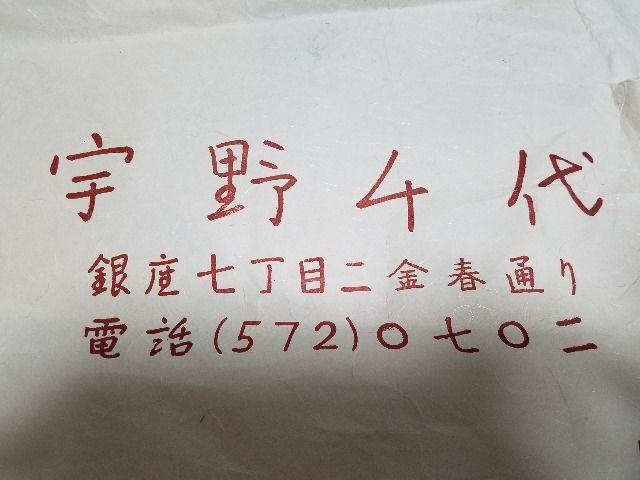 宇野千代
銀座七丁目二金春通り
電話(572)0七0二